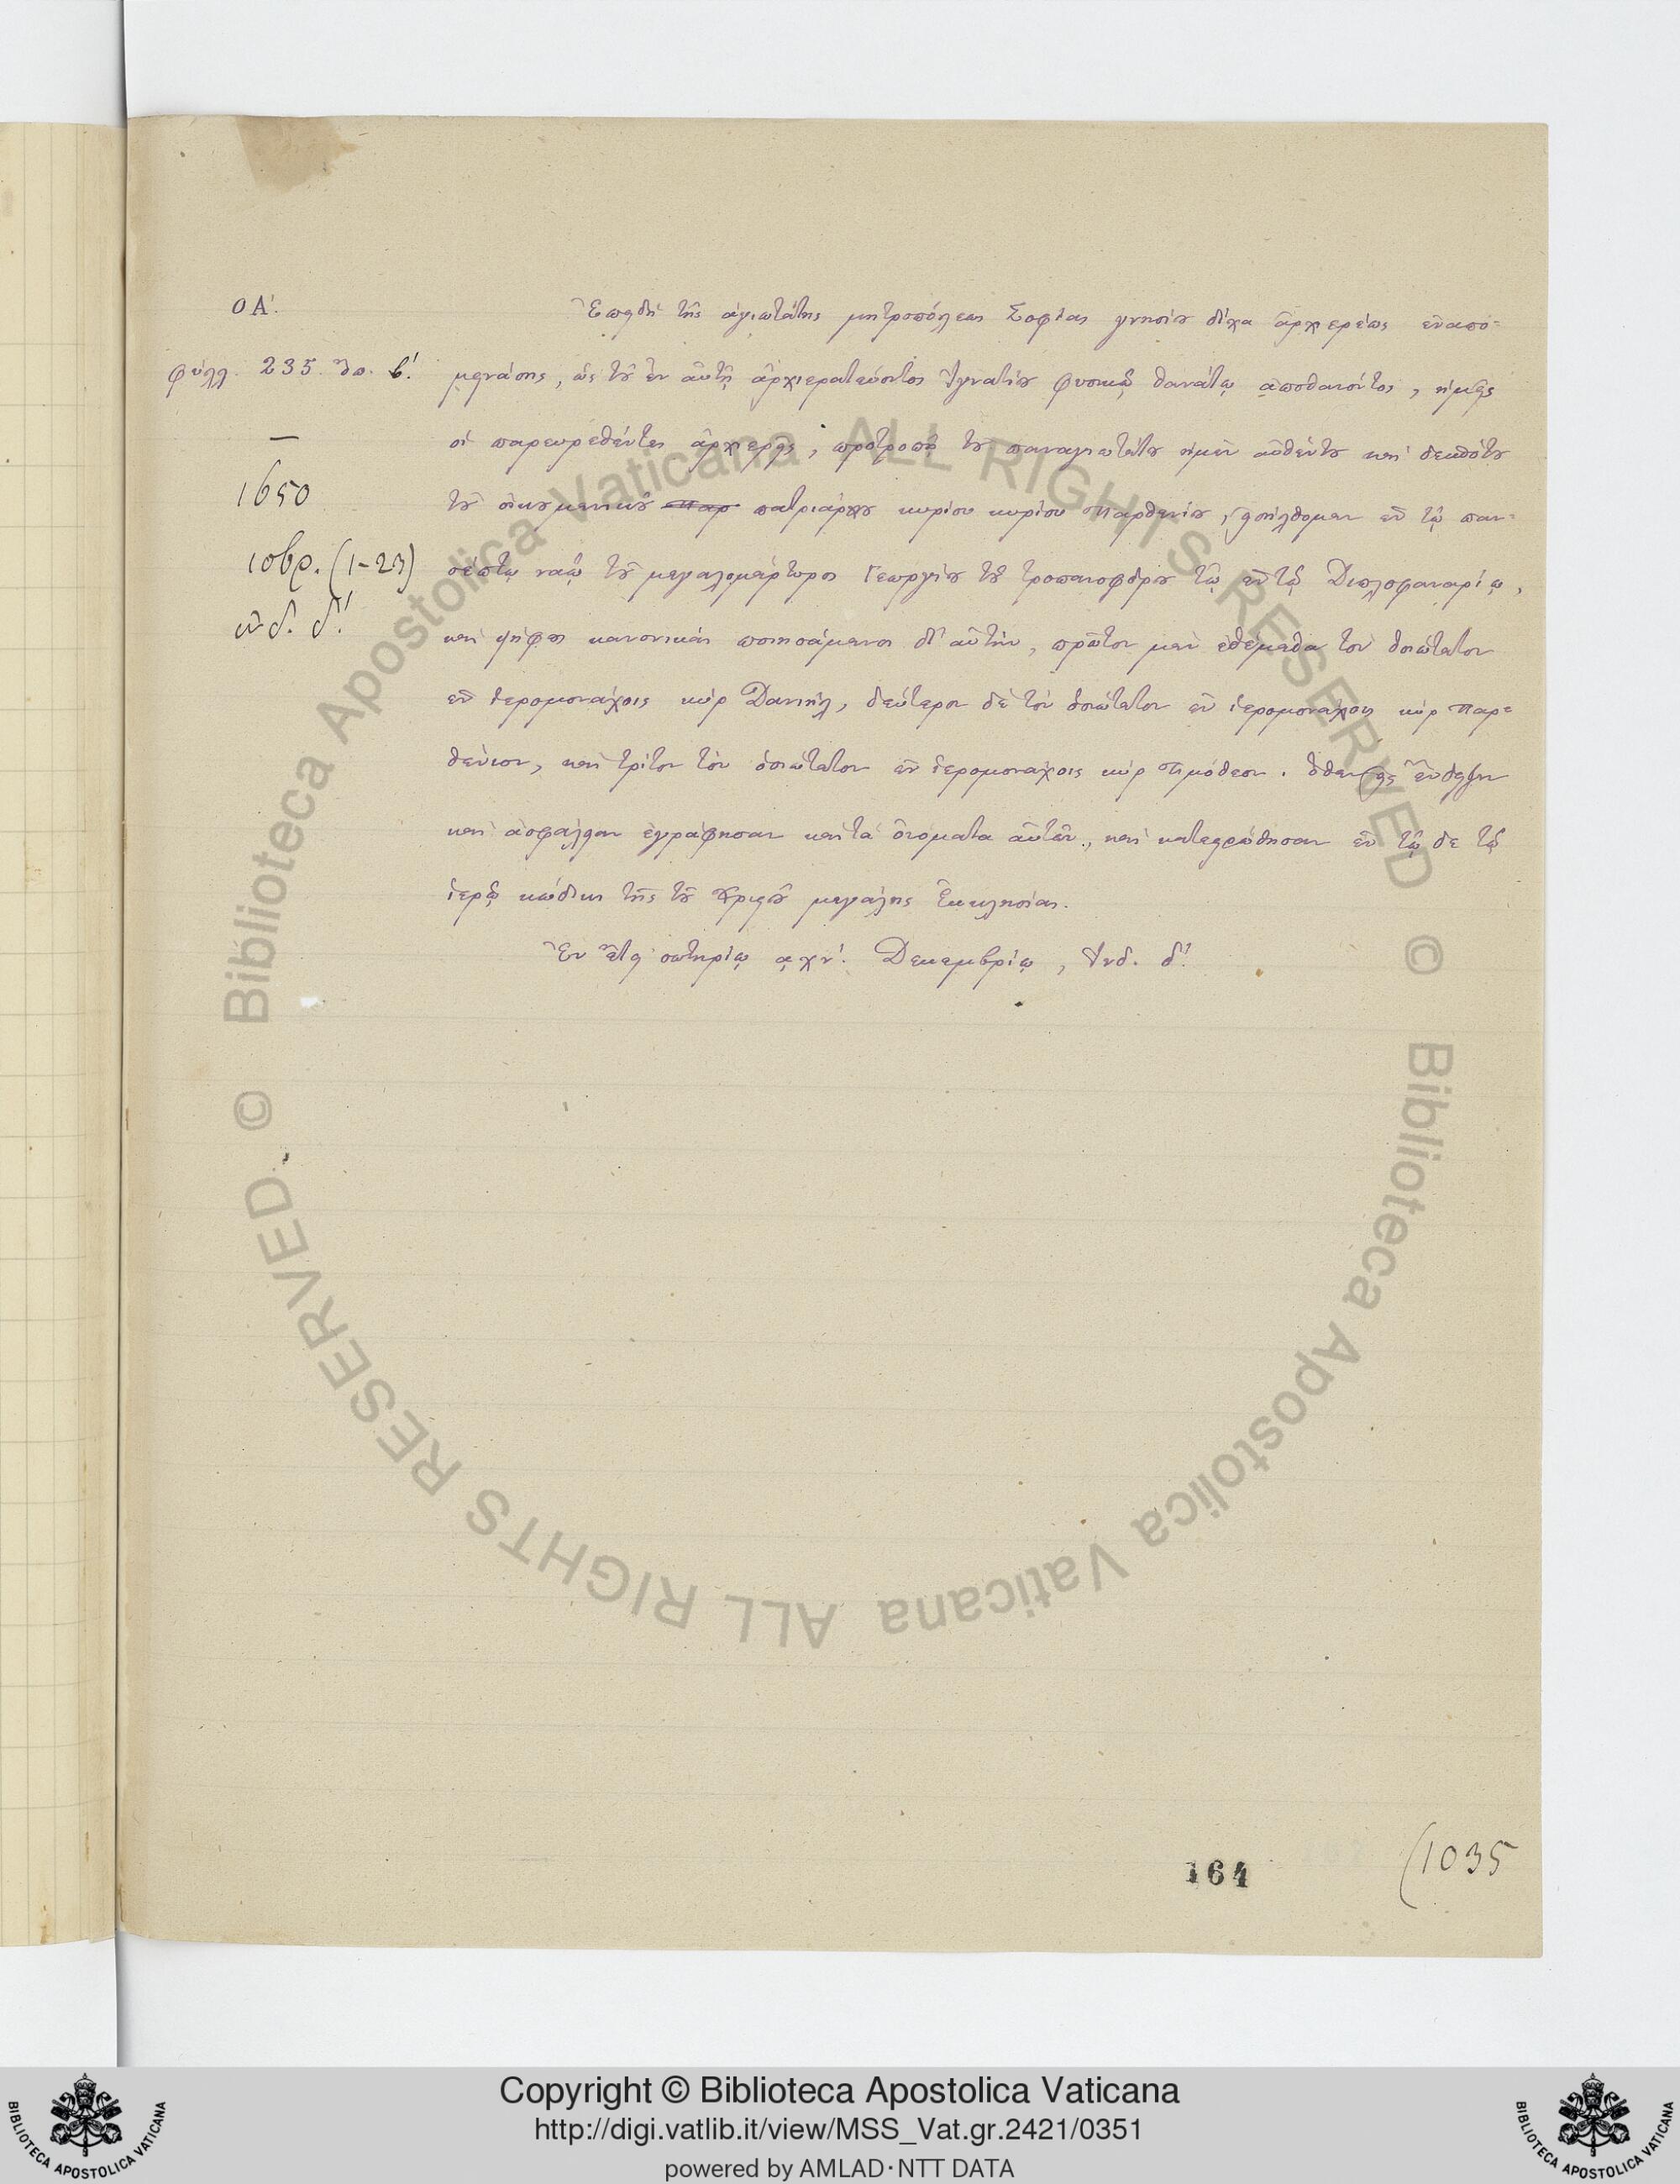 ΟΑ΄.
Ἐπειδὴ τῆς ἁγιωτάτης μητροπόλεως Σοφίας γνησίου δίχα ἀρχιερέως ἐναπο-
φύλλ. 235. β΄. μεινάσης, ὡς τοῦ ἐν αὐτῇ ἀρχιερατεύοντος Ἰγνατίου φυσικῷ θανάτῳ ἀποθανόντος, ἡμεῖς
οἱ παρευρεθέντες ἀρχιερεῖς, προτροπῇ τοῦ παναγιωτάτου ἡμῶν αὐθέντου καὶ δεσπότου
1650
τοῦ οἰκουμενικοῦ παρ πατριάρχου κυρίου κυρίου Παρθενίου, εἰσήλθομεν ἐν τῷ παν-
10βρ. (1-23)
σέπτῳ ναῷ τοῦ μεγαλομάρτυρος Γεωργίου τοῦ τροπαιοφόρου τῷ ἐν τῷ Διπλοφαναρίῳ,
ἰνδ. δ΄.
καὶ ψήφους κανονικὰς ποιησάμενοι δι' αὐτήν, πρῶτον μὲν ἐθέμεθα τὸν ὁσιώτατον
ἐν ἱερομονάχοις κὺρ Δανιήλ, δεύτερον δὲ τὸν ὁσιώτατον ἐν ἱερομονάχοις κὺρ Παρ-
θένιον, καὶ τρίτον τὸν ὁσιώτατον ἐν ἱερομονάχοις κὺρ Τιμόθεον. ὅθεν εἰς ἔνδειξιν
καὶ ἀσφάλειαν ἐγράφησαν καὶ τὰ ὀνόματα αὐτῶν, καὶ κατεστρώθησαν ἐν τῷδε τῷ
ἱερῷ κώδικι τῆς τοῦ Χριστοῦ μεγάλης Ἐκκλησίας.
Ἐν ἔτει σωτηρίῳ αχν΄. Δεκεμβρίῳ, Ἰνδ. δ΄.
164
(1035
© Biblioteca Apostolica Vaticana ALL RIGHTS RESERVED
© Biblioteca Apostolica Vaticana ALL RIGHTS RESERVED
Copyright © Biblioteca Apostolica Vaticana
http://digi.vatlib.it/view/MSS_Vat.gr.2421/0351
powered by AMLAD·NTT DATA
BIBLIOTECA APOSTOLICA VATICANA
BIBLIOTECA APOSTOLICA VATICANA